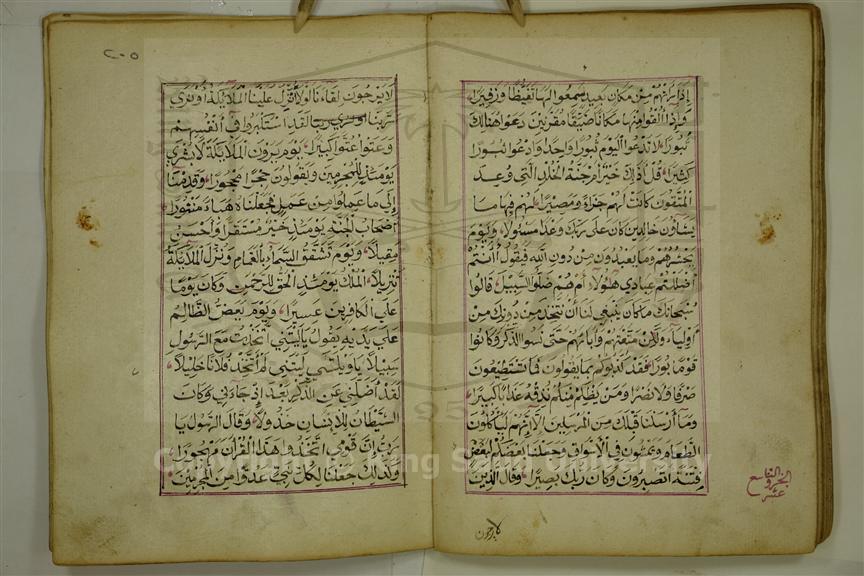 إذا رأتهم من مكان بعيد سمعوا لها تغيظا وزفيرا
وإذا ألقوا منها مكانا ضيقا مقرنين دعوا هنالك
ثبورا لا تدعوا اليوم ثبورا واحدا وادعوا ثبورا
كثيرا قل أذلك خير أم جنة الخلد التي وعد
المتقون كانت لهم جزاء ومصيرا لهم فيها ما
يشاؤن خالدين كان على ربك وعدا مسئولا ويوم
يحشرهم وما يعبدون من دون الله فيقول أأنتم
أضللتم عبادي هؤلاء أم هم ضلوا السبيل قالوا
سبحانك ما كان ينبغي لنا أن نتخذ من دونك من
أولياء ولكن متعتهم وآباءهم حتى نسوا الذكر وكانوا
قوما بورا فقد كذبوكم بما يقولون فما تستطيعون
صرفا ولا نصرا ومن يظلم منكم نذقه عذابا كبيرا
وما أرسلنا قبلك من المرسلين إلا إنهم ليأكلون
الطعام ويمشون في الأسواق وجعلنا بعضكم لبعض
فتنة أتصبرون وكان ربك بصيرا وقال الذين
لا يرجون
الجزء التاسع
عشر
٢٠٥
لا يرجون لقاءنا لولا أنزل علينا الملائكة أو نرى
ربنا لقد استكبروا في أنفسهم
وعتوا عتوا كبيرا يوم يرون الملائكة لا بشرى
يومئذ للمجرمين ويقولون حجرا محجورا وقدمنا
إلى ما عملوا من عمل فجعلناه هباء منثورا
أصحاب الجنة يومئذ خير مستقرا وأحسن
مقيلا ويوم تشقق السماء بالغمام ونزل الملائكة
تنزيلا الملك يومئذ الحق للرحمن وكان يوما
على الكافرين عسيرا ويوم يعض الظالم
على يديه يقول يا ليتني اتخذت مع الرسول
سبيلا يا ويلتى ليتني لم أتخذ فلانا خليلا
لقد أضلني عن الذكر بعد إذ جاءني وكان
الشيطان للإنسان خذولا وقال الرسول يا
رب إن قومي اتخذوا هذا القرآن مهجورا
وكذلك جعلنا لكل نبي عدوا من المجرمين
Copyright © King Saud University